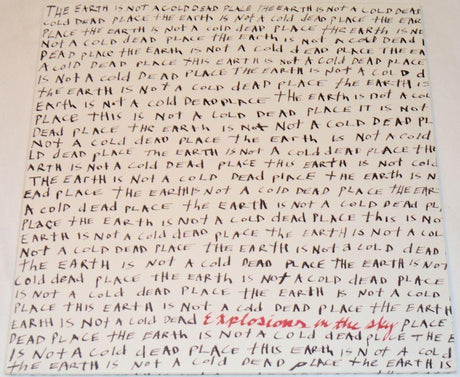 THE EARTH IS NOT A COLD DEAD PLACE THE EARTH IS NOT A COLD DEAD
COLD DEAD PLACE THE EARTH IS NOT A COLD DEAD PLACE THE EAR
PLACE THE EARTH IS NOT A COLD DEAD PLACE THE EARTH IS NO
NOT A COLD DEAD PLACE THE EARTH IS NOT A COLD DEAD
DEAD PLACE THE EARTH IS NOT A COLD DEAD PLACE THE EA
A COLD DEAD PLACE THIS EARTH IS NOT A COLD DEAD PLACE
IS NOT A COLD DEAD PLACE THE EARTH IS NOT A COLD D
THE EARTH IS NOT A COLD DEAD PLACE THE EARTH IS
EARTH IS NOT A COLD DEAD PLACE THE EARTH IS NOT A COL
PLACE THIS IS NOT A COLD DEAD PLACE IT IS NOT
DEAD PLACE THE EARTH IS NOT NOT A COLD DEAD PL
NOT A COLD DEAD PLACE THE EARTH IS NOT A COLD
LD DEAD PLACE THE EARTH IS NOT A COLD DEAD PLACE THE
ARTH IS NOT A COLD DEAD PLACE THIS EARTH IS NOT COLD
THE EARTH IS NOT A COLD DEAD PLACE THE EARTH IS N
EAD PLACE THE EARTH IS NOT A COLD DEAD PLACE THE EAR
A COLD DEAD PLACE THE EARTH IS NOT A COLD DEAD
PLACE THE EARTH IS NOT A COLD DEAD PLACE THIS IS NO
EARTH IS NOT A COLD DEAD PLACE THE EARTH IS NOT A COLD
NOT A COLD DEAD PLACE THE EARTH IS NOT A COLD DEAD
THE EARTH IS NOT A COLD DEAD PLACE THE EARTH IS NOT
COLD DEAD PLACE THE EARTH IS NOT A COLD DEAD PLACE
IS NOT A COLD DEAD PLACE THE EARTH IS NOT A COLD
PLACE THIS EARTH IS NOT A COLD DEAD PLACE THE EARTH IS
EARTH IS NOT A COLD DEAD Explosions in the sky PLACE
DEAD PLACE THE EARTH IS NOT A COLD DEAD PLACE THE E
IS NOT A COLD DEAD PLACE THIS EARTH IS NOT A COLD
THE EARTH IS NOT A COLD DEAD PLACE THE EARTH IS NO